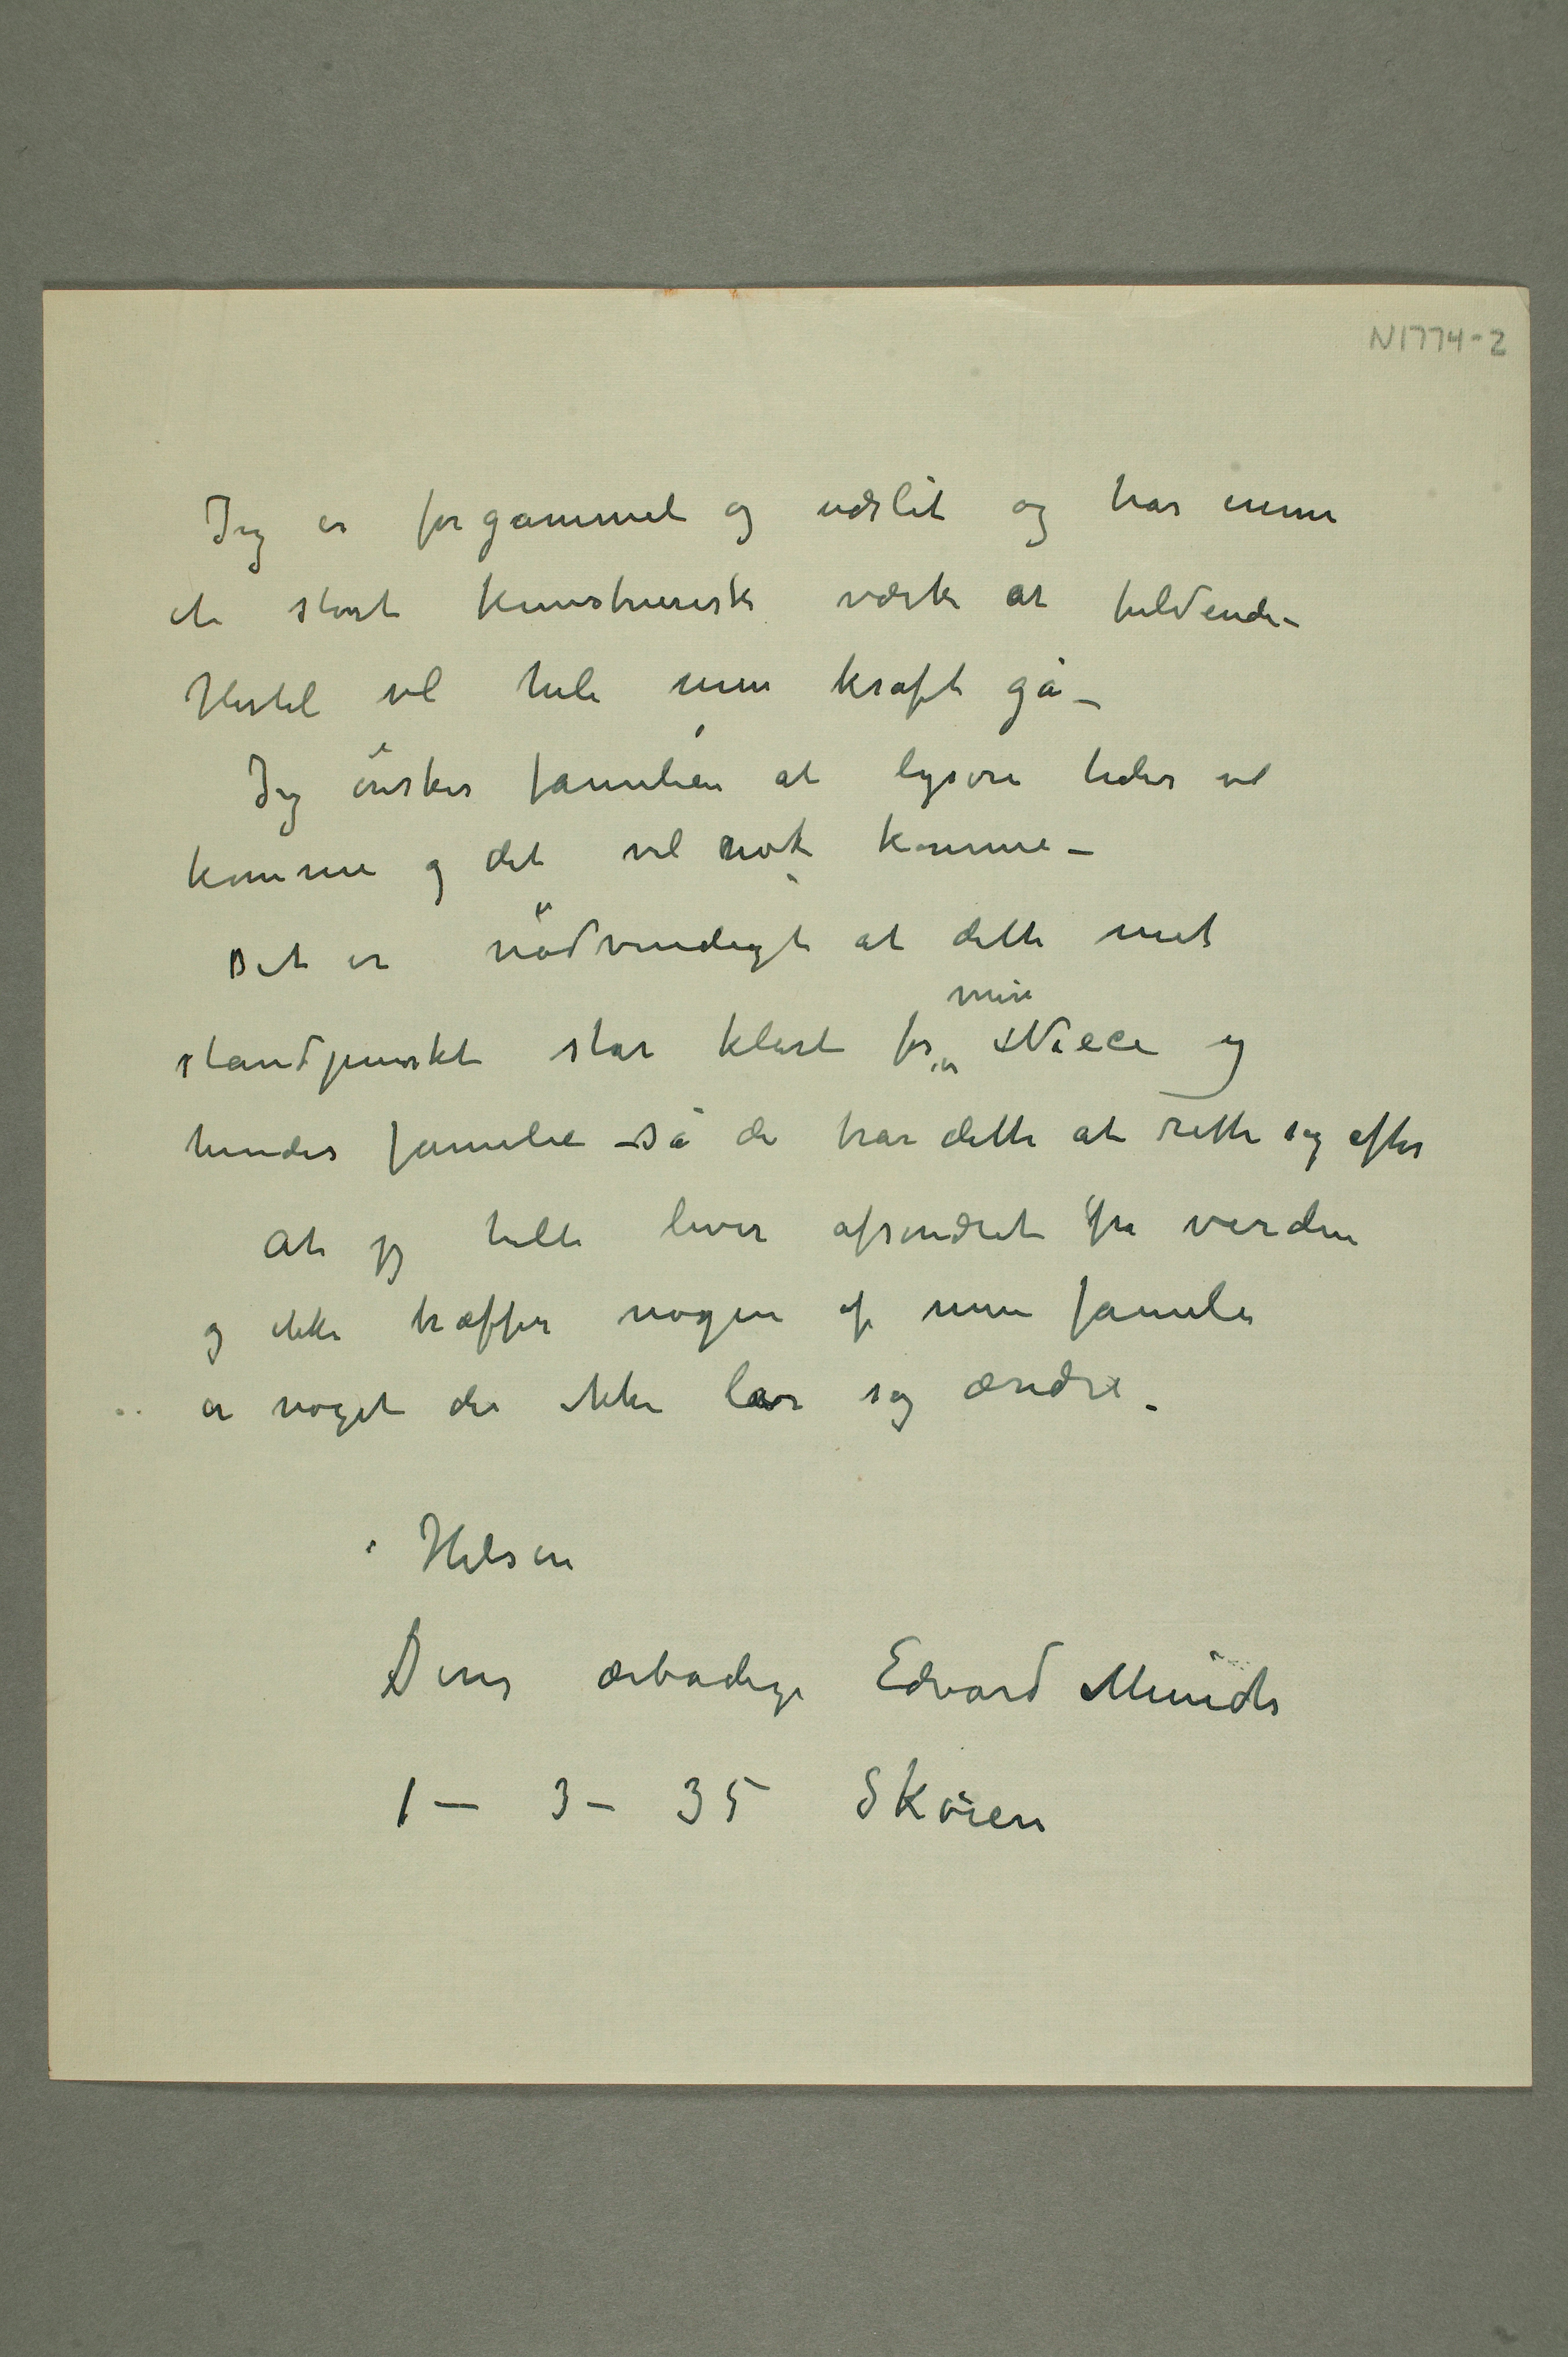 N1774-2
Jeg er for gammel og udslit og har ennu
et stort kunstnerisk værk at fuldende –
Hertil vil hele min kraft gå –
Jeg ønsker familien at lysere tider vil
komme og det vil nok komme –
Det er nødvendigt at dette mit
min
standpunkt står klart for Niece og
hendes familie – så de har dette at rette sig efter
At jeg helt lever afsondret fra verden
og ikke træffer nogen af min familie
er noget der ikke lar sig ændre –
Hilsen
Deres ærbødige Edvard Munch
1 – 3 – 35 Skøien